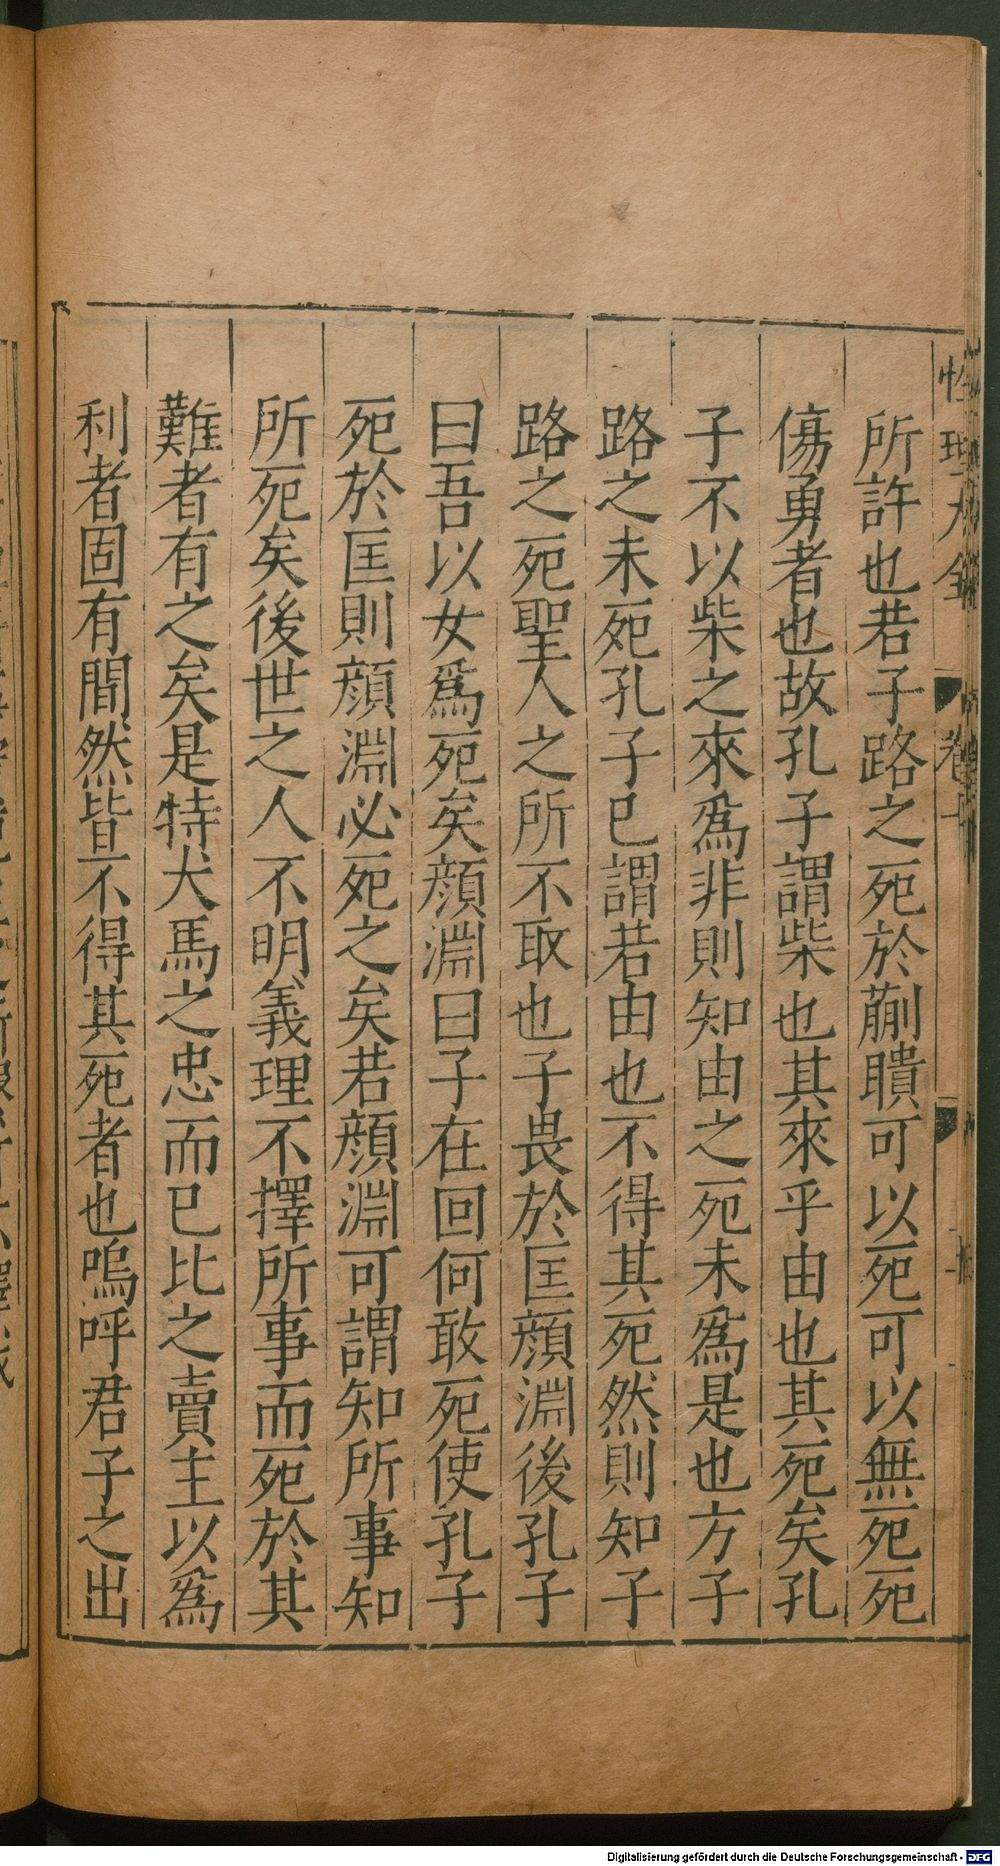 性理大全 卷十
所許也若子路之死於蒯聵可以死可以無死死
傷勇者也故孔子謂柴也其來乎由也其死矣孔
子不以柴之來爲非則知由之死未爲是也方子
路之未死孔子已謂若由也不得其死然則知子
路之死聖人之所不取也子畏於匡顔淵後孔子
曰吾以女爲死矣顔淵曰子在回何敢死使孔子
死於匡則顔淵必死之矣若顔淵可謂知所事知
所死矣後世之人不明義理不擇所事而死於其
難者有之矣是特犬馬之忠而已比之賣主以爲
利者固有間然皆不得其死者也嗚呼君子之出
Digitalisierung gefördert durch die Deutsche Forschungsgemeinschaft - DFG